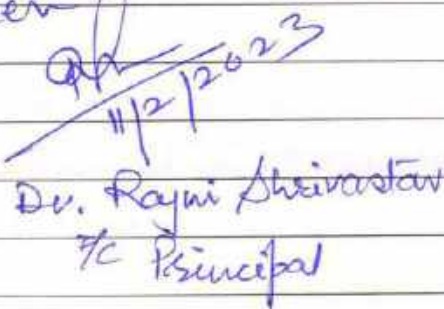 11/2/2023
Dr. Rajni Shrivastav
I/C Principal